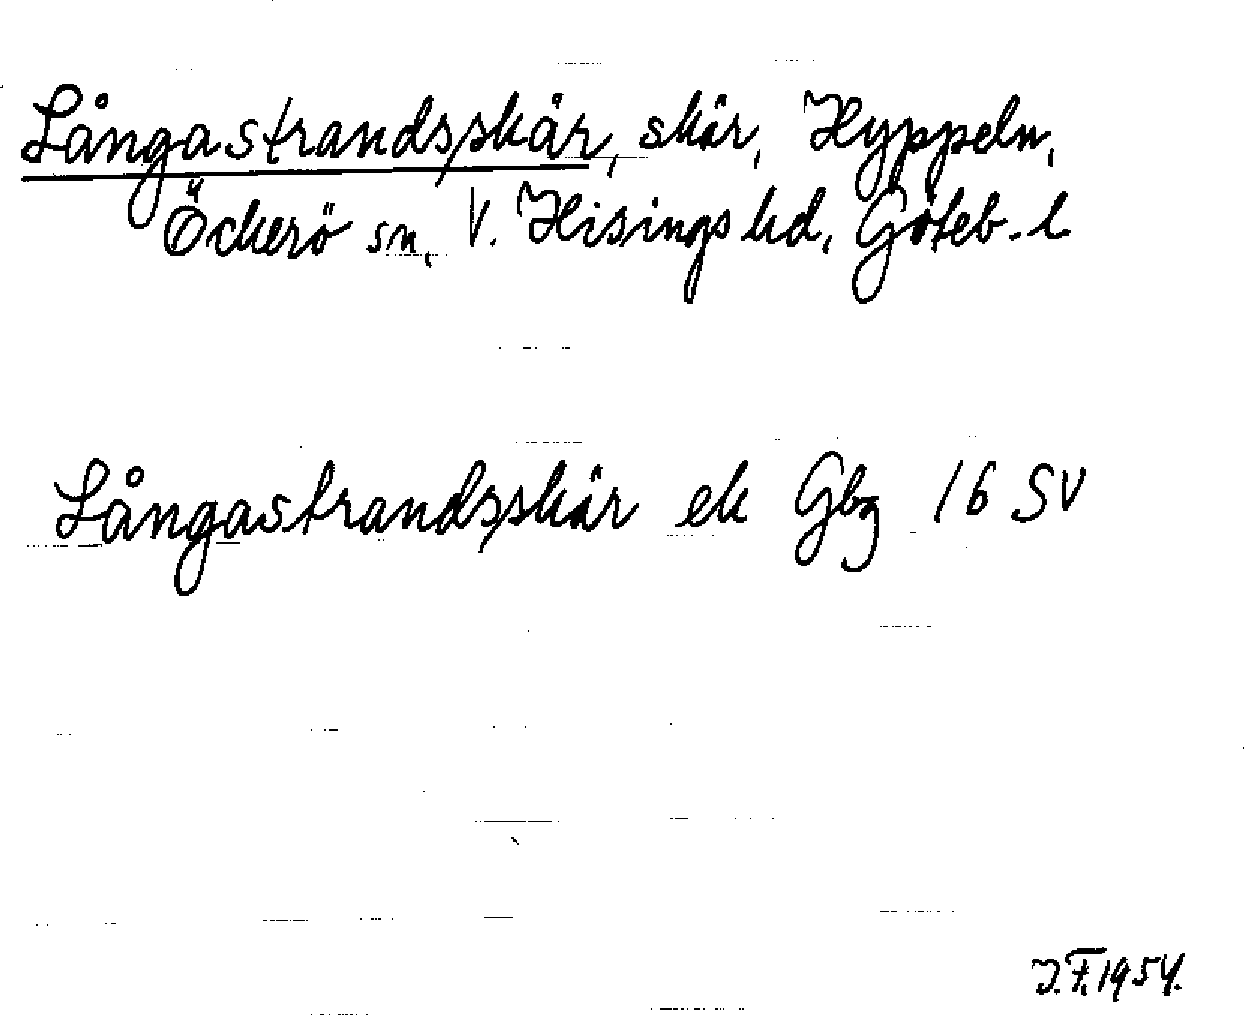 Långastrandsskär, skär, Hyppeln,
Öckerö sn, V. Hisings hd, Göteb. l
Långastrandsskär ek Gbg 16 SV
J.F. 1954.